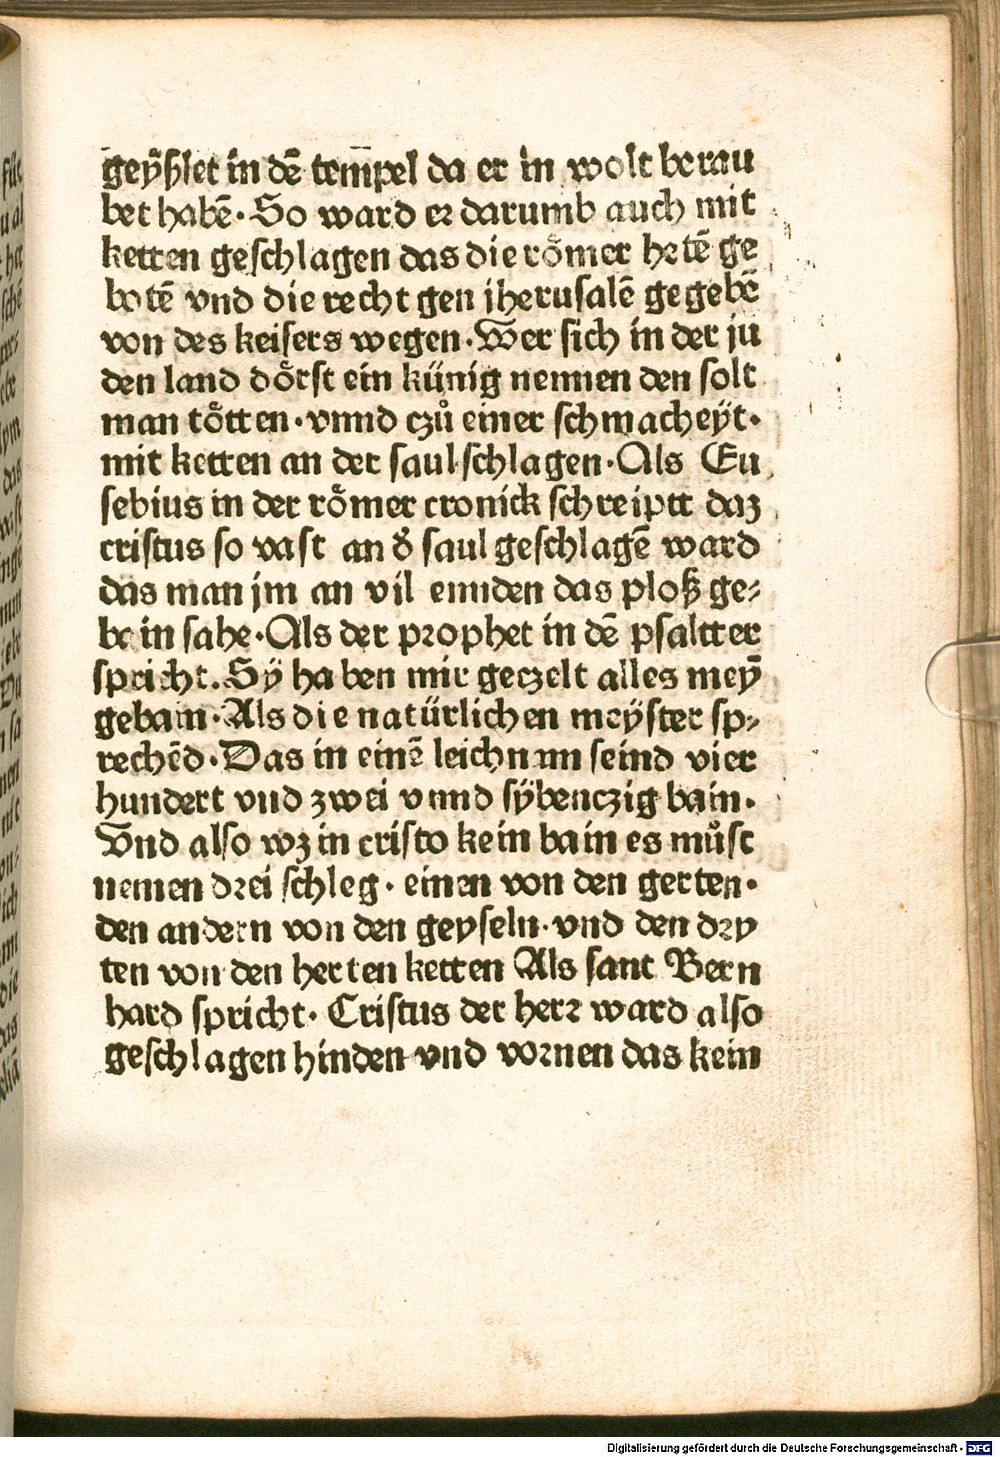 geyßlet in dē tem̄pel da er in wolt berau
bet habē. So ward er darumb auch mit
ketten geschlagen das die römer hetē ge
botē vnd die recht gen jherusalē gegebē
von des keisers wegen. Wer sich in der ju
den land dörst ein künig nennen den solt
man tötten. vnnd czů einer schmacheÿt.
mit ketten an der saul schlagen. Als Eu
sebius in der römer cronick schreiptt daz
cristus so vast an d̄ saul geschlagē ward
das man jm an vil ennden das ploß ge-
bein sahe. Als der prophet in dē psaltter
spricht. Sÿ haben mir geczelt alles meȳ
gebain. Als die natürlichen meÿster sp-
rechēd. Das in einē leichnam seind vier
hundert vnd zwei vnnd sÿbenczig bain.
Vnd also wz in cristo kein bain es můst
nemen drei schleg. einen von den gerten.
den andern von den geyseln. vnd den dry
ten von den herten ketten Als sant Bern
hard spricht. Cristus der herr ward also
geschlagen hinden vnd vornen das kein
Digitalisierung gefördert durch die Deutsche Forschungsgemeinschaft - DFG